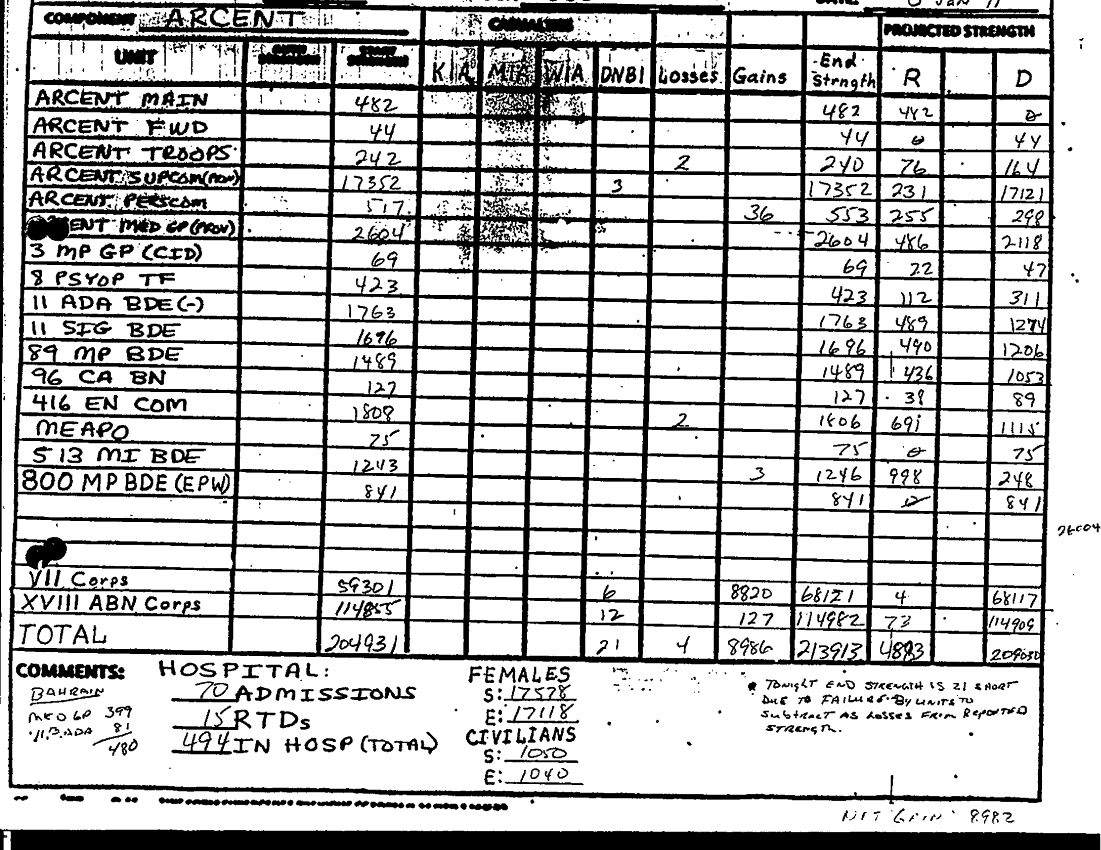 COMPONENT ARCENT
CASUALTIES
PROJECTED STRENGTH
UNIT START STRENGTH KIA MIA WIA DNBI Losses Gains End Strngth R D
ARCENT MAIN 482 482 482 0
ARCENT FWD 44 44 0 44
ARCENT TROOPS 242 2 240 76 164
ARCENT SUPCOM(PROV) 17352 3 17352 231 17121
ARCENT PERSCOM 517 36 553 255 298
ENT MED GP (PROV) 2604 2604 486 2118
3 MP GP (CID) 69 69 22 47
8 PSYOP TF 423 423 112 311
11 ADA BDE (-) 1763 1763 489 1274
11 SIG BDE 1696 1696 490 1206
89 MP BDE 1489 1489 436 1053
96 CA BN 127 127 38 89
416 EN COM 1808 2 1806 691 1115
MEAPO 75 75 0 75
513 MI BDE 1243 3 1246 998 248
800 MP BDE (EPW) 841 841 0 841
VII Corps 59301 6 8820 68121 4 68117
XVIII ABN Corps 114855 12 127 114982 73 114909
TOTAL 204931 21 4 8986 213913
COMMENTS: HOSPITAL:
70 ADMISSIONS
15 RTDs
494 IN HOSP (TOTAL)
BAHRAIN
MED GP 399
11 ADA 81
480
FEMALES
S: 17578
E: 17118
CIVILIANS
S: 1050
E: 1040
* TONIGHT END STRENGTH IS 21 SHORT
DUE TO FAILURE BY UNITS TO
SUBTRACT AS LOSSES FROM REPORTED
STRENGTH.
NET GAIN 8982